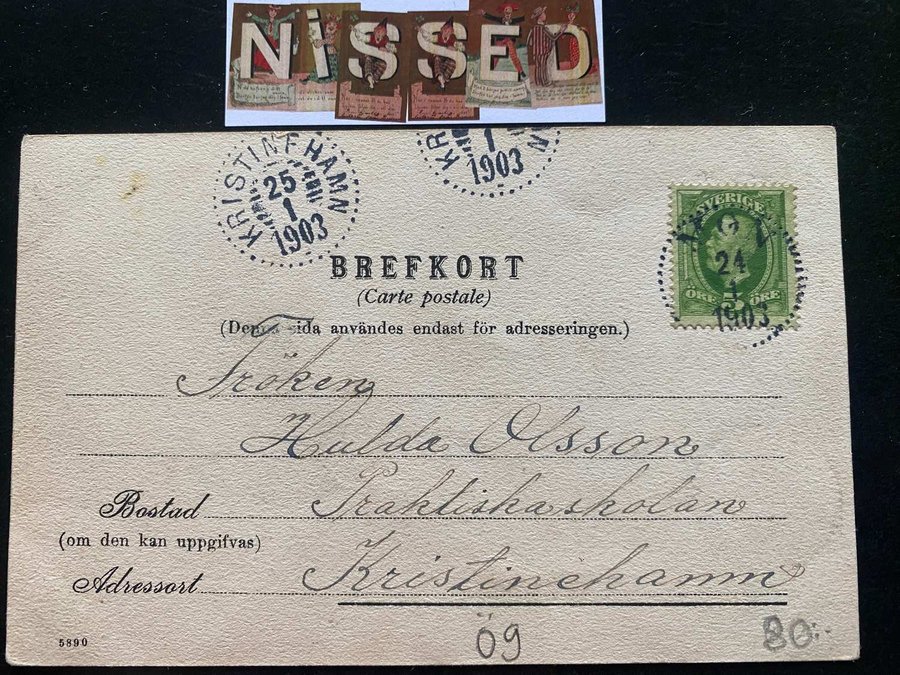 NISSED
KRISTINEHAMN
25
1
1903
KR N
1
1903
SVERIGE
24
1
1903
5
ÖRE ÖRE
BREFKORT
(Carte postale)
(Denna sida användes endast för adresseringen.)
Fröken
Hulda Olsson
Bostad Praktiskaskolan
(om den kan uppgifvas)
Adressort Kristinehamn
5890
Ög
80:-